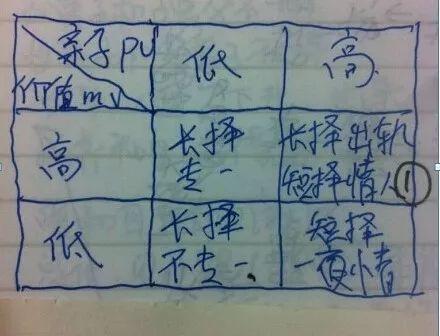 亲子PU 低 高
价值mv
高 长择 长择出轨
专一 短择情人①
低 长择 短择
不专一、 一夜情